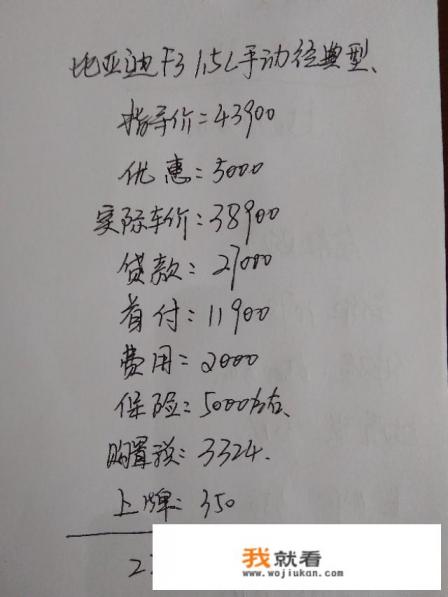 比亚迪F3 1.5L手动经典型、
指导价=43900
优惠:5000
实际车价:38900
贷款:27000
首付:11900
费用=2000
保险:5000左右、
购置税:3324.
上牌:350
2
我就看
www.wojiukan.com